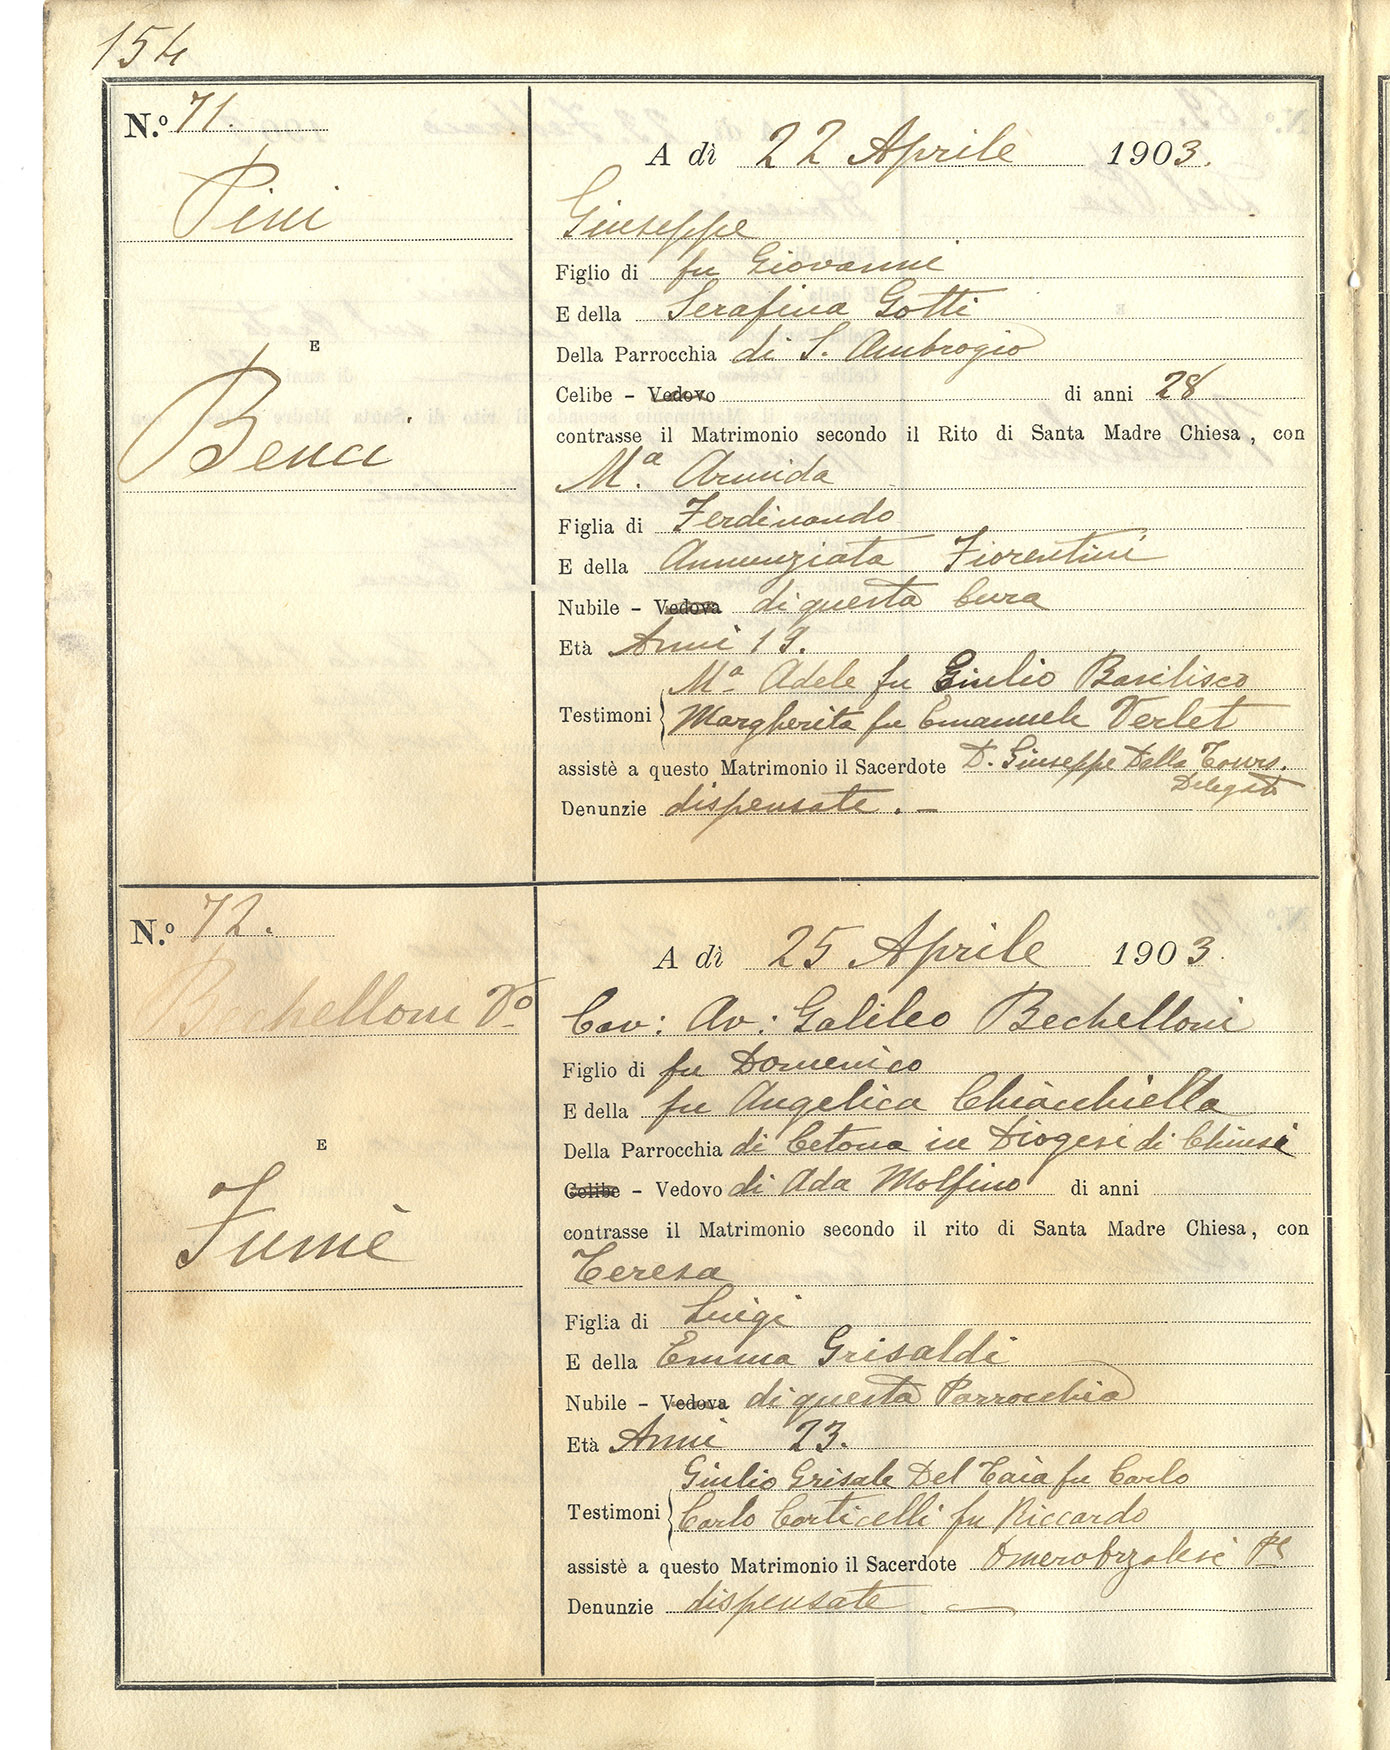 154
N.º 71.
Pini
E
Benci
A dì 22 Aprile 1903.
Giuseppe
Figlio di fu Giovanni
E della Serafina Gotti
Della Parrocchia di S. Ambrogio
Celibe - Vedovo di anni 28
contrasse il Matrimonio secondo il Rito di Santa Madre Chiesa, con
Mª. Armida
Figlia di Ferdinando
E della Annunziata Fiorentini
Nubile - Vedova di questa Cura
Età Anni 19.
Mª Adele fu Giulio Basilisco
Testimoni Margherita fu Emanuele Verlet
assistè a questo Matrimonio il Sacerdote D. Giuseppe Della
Denunzie dispensate. —
N.º 72.
Bechelloni Vº
E
Fumè
A dì 25 Aprile 1903.
Cav: Av: Galileo Bechelloni
Figlio di fu Domenico
E della fu Angelica Chiacchiella
Della Parrocchia di Cetona in Diogesi di Chiusi
Celibe - Vedovo di Ada Molfino di anni
contrasse il Matrimonio secondo il rito di Santa Madre Chiesa, con
Teresa
Figlia di Luigi
E della Emma Grisaldi
Nubile - Vedova di questa Parrocchia
Età Anni 23.
Giulio Grisale Del Taia fu Carlo
Testimoni Carlo Corticelli fu Riccardo
assistè a questo Matrimonio il Sacerdote
Denunzie dispensate. —